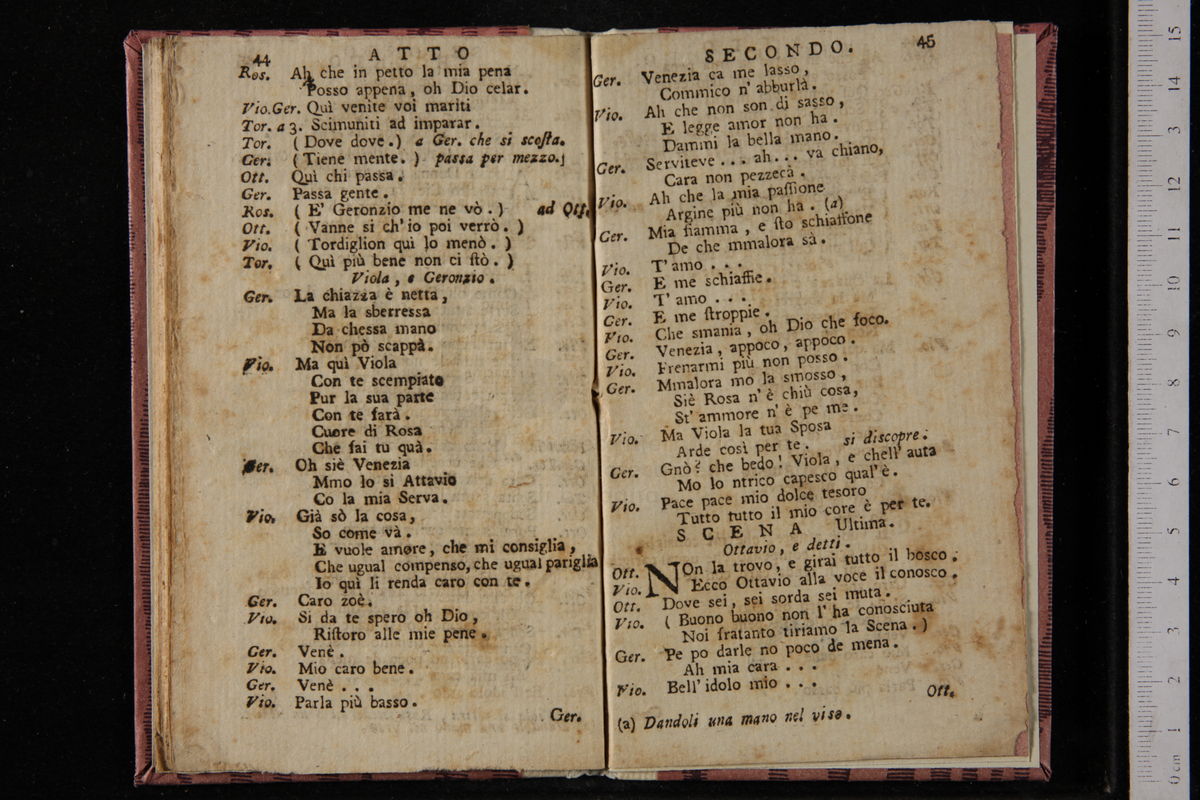 44
ATTO
Ros. Ah che in petto la mia pena
Posso appena, oh Dio celar.
Vio. Ger. Quì venite voi mariti
Tor. a 3. Scimuniti ad imparar.
Tor. (Dove dove.) a Ger. che si scosta.
Ger. (Tiene mente.) passa per mezzo.
Ott. Quì chi passa.
Ger. Passa gente.
Ros. (E' Geronzio me ne vò.) ad Ott.
Ott. (Vanne si ch'io poi verrò.)
Vio. (Tordiglion quì lo menò.)
Tor. (Quì più bene non ci stò.)
Viola, e Geronzio.
Ger. La chiazza è netta,
Ma la sberressa
Da chessa mano
Non pò scappà.
Vio. Ma quì Viola
Con te scempiato
Pur la sua parte
Con te farà.
Cuore di Rosa
Che fai tu quà.
Ger. Oh siè Venezia
Mmo lo si Attavio
Co la mia Serva.
Vio. Già sò la cosa,
So come và.
E vuole amore, che mi consiglia,
Che ugual compenso, che ugual pariglia
Io quì li renda caro con te.
Ger. Caro zoè.
Vio. Si da te spero oh Dio,
Ristoro alle mie pene.
Ger. Venè.
Vio. Mio caro bene.
Ger. Venè...
Vio. Parla più basso.
Ger.
SECONDO.
45
Ger. Venezia ca me lasso,
Commico n'abburlà.
Vio. Ah che non son di sasso,
E legge amor non ha.
Dammi la bella mano.
Ger. Serviteve... ah... va chiano,
Cara non pezzecà.
Vio. Ah che la mia passione
Argine più non ha. (a)
Ger. Mia fiamma, e sto schiaffone
De che mmalora sà.
Vio. T'amo...
Ger. E me schiaffie.
Vio. T'amo...
Ger. E me stroppie.
Vio. Che smania, oh Dio che foco.
Ger. Venezia, appoco, appoco.
Vio. Frenarmi più non posso.
Ger. Mmalora mo la smosso,
Siè Rosa n'è chiù cosa,
St'ammore n'è pe me.
Vio. Ma Viola la tua Sposa
Arde così per te. si discopre.
Ger. Gnò? che bedo! Viola, e chell'auta
Mo lo ntrico capesco qual'è.
Vio. Pace pace mio dolce tesoro
Tutto tutto il mio core è per te.
SCENA Ultima.
Ottavio, e detti.
Ott. NOn la trovo, e girai tutto il bosco.
Vio. Ecco Ottavio alla voce il conosco.
Ott. Dove sei, sei sorda sei muta.
Vio. (Buono buono non l'ha conosciuta
Noi fratanto tiriamo la Scena.)
Ger. Pe po darle no poco de mena.
Ah mia cara...
Vio. Bell'idolo mio...
Ott.
(a) Dandoli una mano nel viso.
15
14
13
12
11
10
9
8
7
6
5
4
3
2
1
0 cm